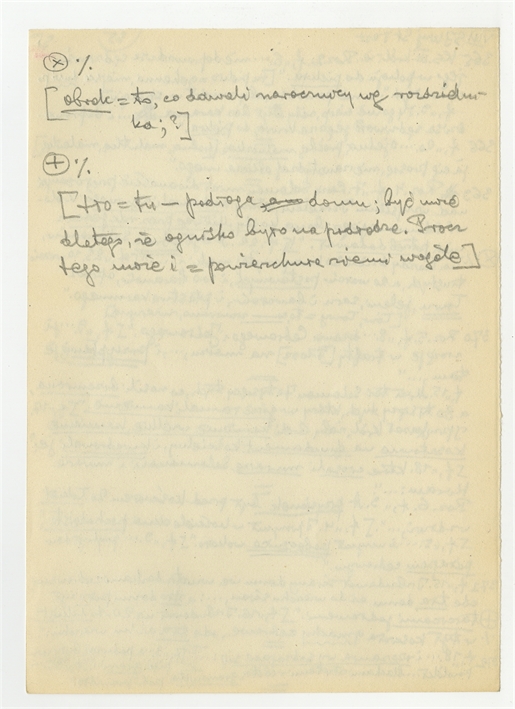 (x) ·/.
[obrok = to, co dawali narocznicy wg rozdzielni-
ka; ?]
(+) ·/.
[tło = tu — podłoga domu; być może
dlatego, że ognisko było na podłodze. Prócz
tego może i = powierzchnię ziemi wogóle]